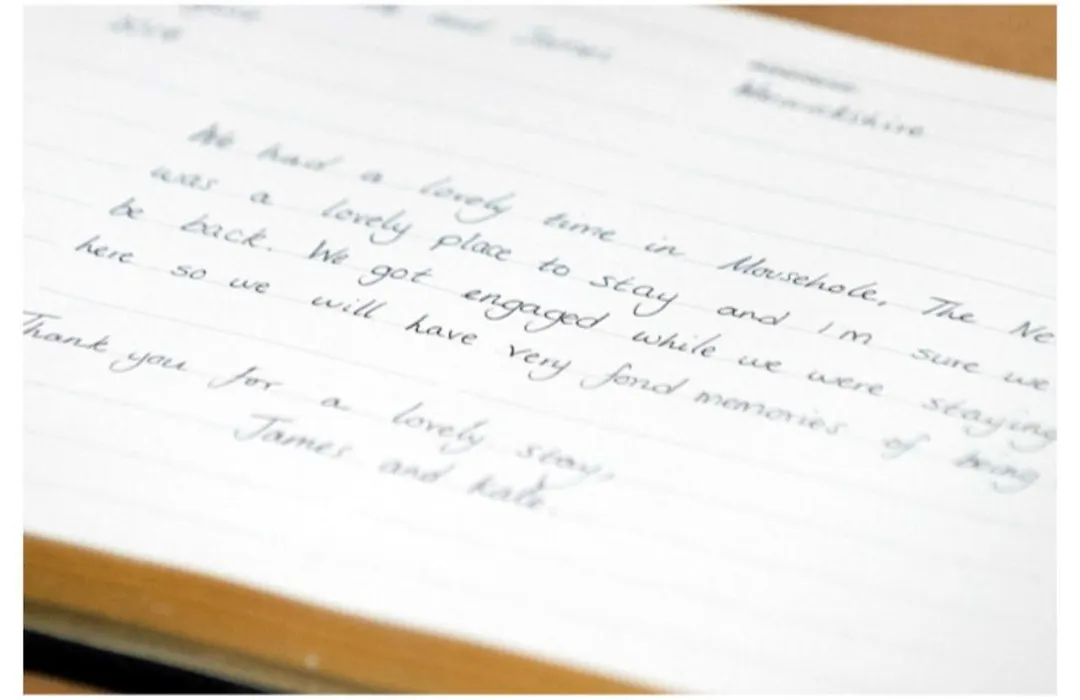 and James
Warwickshire
We had a lovely time in Mousehole. The Ne
was a lovely place to stay and I'm sure we
be back. We got engaged while we were staying
here so we will have very fond memories of being
Thank you for a lovely stay,
James and Kate.